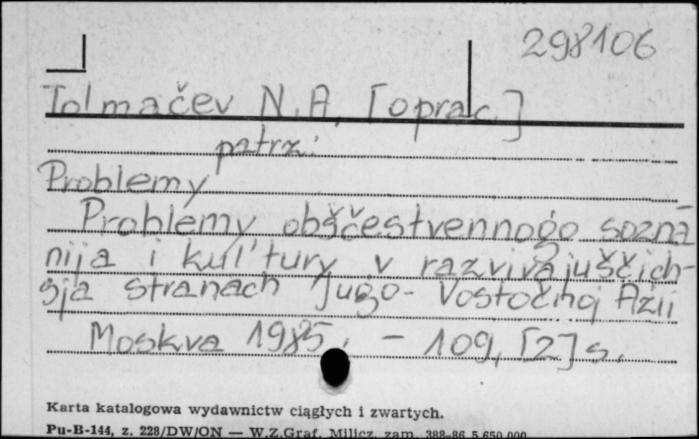 298106
Tolmačev N.A. [oprac.]
patrz:
Problemy
Problemy obščestvennogo sozna-
nija i kul'tury v razvivajuščich-
sja stranach Jugo-Vostočnoj Azii
Moskva 1985. - 109, [2] s.
Karta katalogowa wydawnictw ciągłych i zwartych.
Pu-B-144, z. 228/DW/ON — W.Z.Graf. Milicz, zam. 388-86 5.650.000